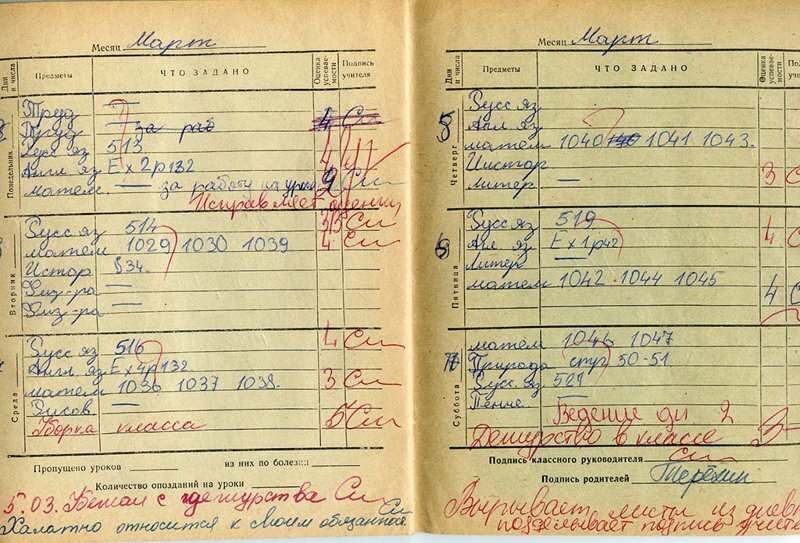 Месяц Март
Дни и числа
Предметы
ЧТО ЗАДАНО
Оценка успеваемости
Подпись учителя
Понедельник
Труд —
Труд за раб 4 См
Русс яз 513 4
Англ яз Ех 2 р 132
матем — за работу на уроке См
Исправляет оценки
Вторник
Русс яз 514 См
матем 1029 1030 1039 4 См
Истор § 34.
Физ-ра —
Физ-ра —
Среда
Русс яз 516 4 См
Англ. яз Ех 4р 132
матем 1036 1037 1038. 3 См
Рисов. —
Уборка класса 5 См
Пропущено уроков
из них по болезни
Количество опозданий на уроки
5.03. Бежал с дежурства См
Халатно относится к своим обязанност См
Месяц Март
Дни и числа
Предметы
ЧТО ЗАДАНО
Оценка успевае-
По
уч
5
Четверг
Русс яз
Англ яз
матем 1040 1041 1043.
Истор
Литер — 3 С
6
Пятница
Русс яз 519 4 С
Анг яз Ех 1р42
Литер —
матем 1042 1044 1045 4
Суббота
матем 1046 1047
Природа стр 50-51
Русс. яз 521
Пение —
Ведение дн 2
Дежурство в классе 3-
Подпись классного руководителя См
Подпись родителей Терёхин
Вырывает листы из днев
подделывает подпись учите